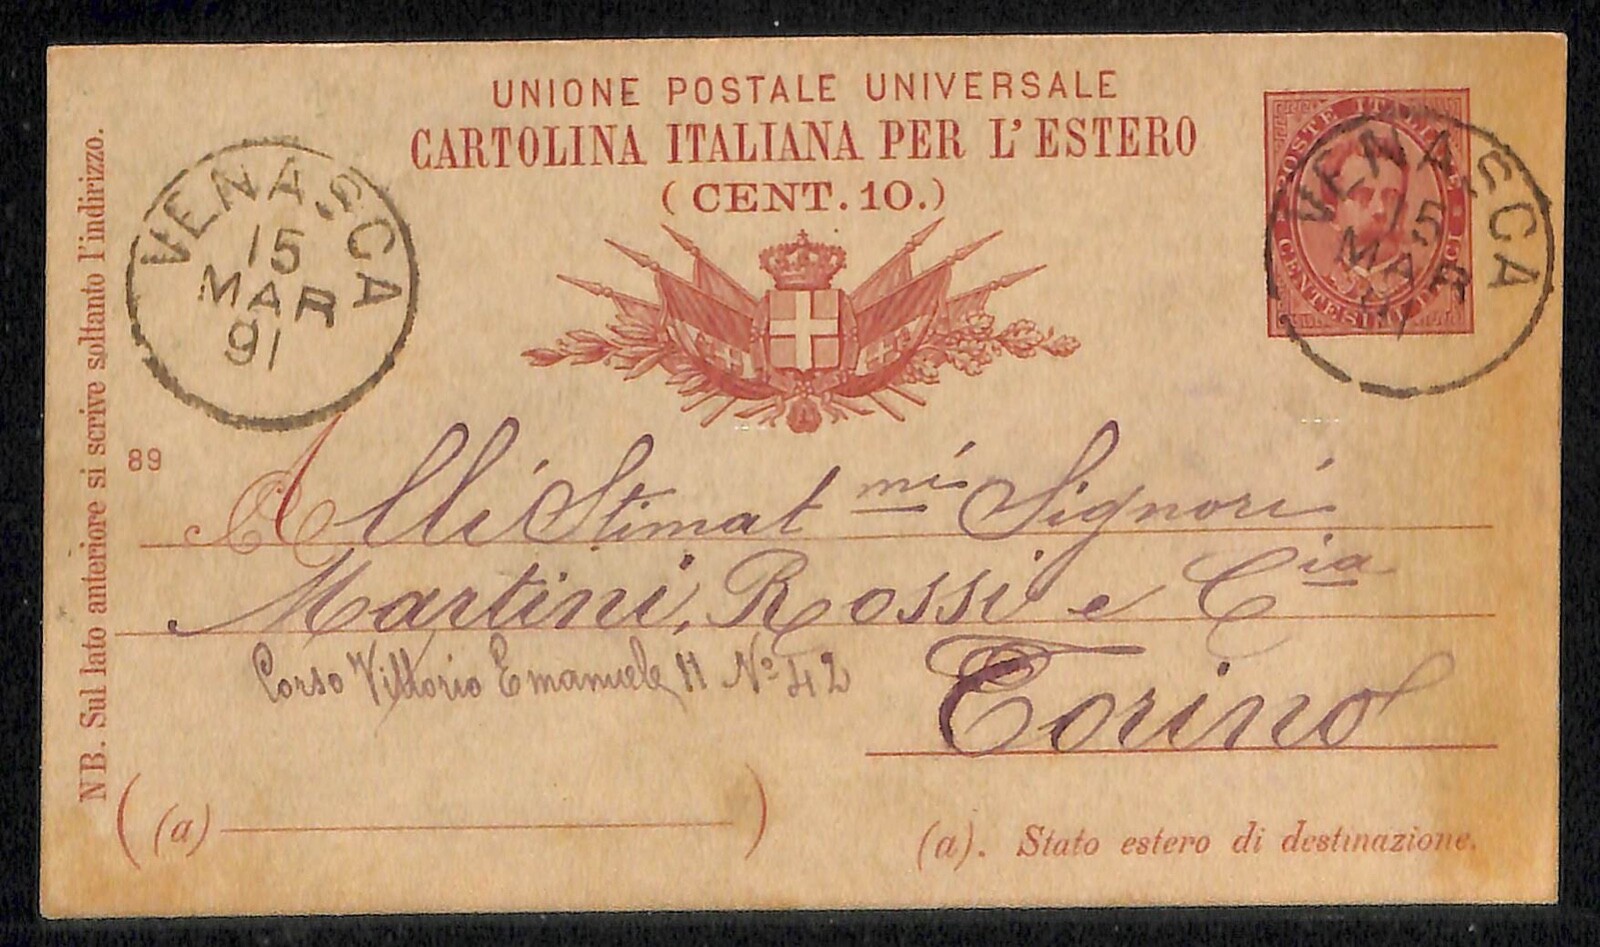 UNIONE POSTALE UNIVERSALE
CARTOLINA ITALIANA PER L'ESTERO
(CENT. 10.)
POSTE ITALIANE
CENTESIMI DIECI
VENASCA
15
MAR
91
VENASCA
15
MAR
91
NB. Sul lato anteriore si scrive soltanto l'indirizzo.
89
Alli Stimatmi Signori
Martini, Rossi e Cia
Corso Vittorio Emanuele II No 42
Torino
(a)
(a). Stato estero di destinazione.